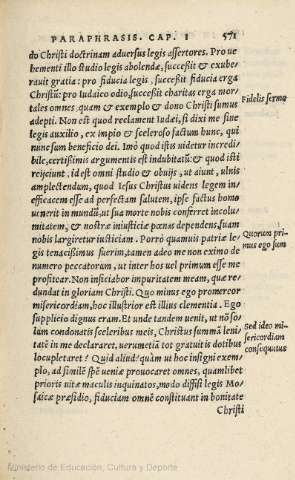 PARAPHRASIS. CAP. I 571
do Christi doctrinam adversus legis assertores. Pro ue
hementi illo studio legis abolendæ, successit & exube-
rauit gratia: pro fiducia legis, successit fiducia erga
Christũ: pro Iudaico odio, successit charitas erga mor-
tales omnes, quam & exemplo & dono Christi sumus
Fidelis sermo
adepti. Non est quod reclament Iudæi, si dixi me sine
legis auxilio, ex impio & sceleroso factum hunc, qui
nunc sum beneficio dei. Imò quod istis uidetur incredi-
bile, certissimis argumentis est indubitatũ: & quod isti
reijciunt, id est omni studio & obuijs, ut aiunt, ulnis
amplectendum, quod Iesus Christus uidens legem in-
efficacem esse ad perfectam salutem, ipse factus homo
uenerit in mundũ, ut sua morte nobis conferret incolu-
mitatem, & nostræ iniusticiæ pœnas dependens, suam
nobis largiretur iusticiam. Porrò quamuis patriæ le-
Quorum pri-
mus ego sum
gis tenacissimus fuerim, tamen adeo me non eximo de
numero peccatorum, ut inter hos uel primum esse me
profitear. Non inficiabor impuritatem meam, quæ re-
dundat in gloriam Christi. Quo minus ego promereor
misericordiam, hoc illustrior est illius clementia. Ego
supplicio dignus eram. Et unde tandem uenit, ut nõ so-
lum condonatis sceleribus meis, Christus summã leni-
Sed ideo mi-
sericordiam
consequutus
tatẽ in me declararet, uerumetiã tot gratuitis dotibus
locupletaret? Quid aliud, quàm ut hoc insigni exem-
plo, ad similẽ spẽ ueniæ prouocaret omnes, quamlibet
prioris uitæ maculis inquinatos, modo diffisi legis Mo-
saicæ præsidio, fiduciam omnẽ constituant in bonitate
Christi
Ministerio de Educación, Cultura y Deporte